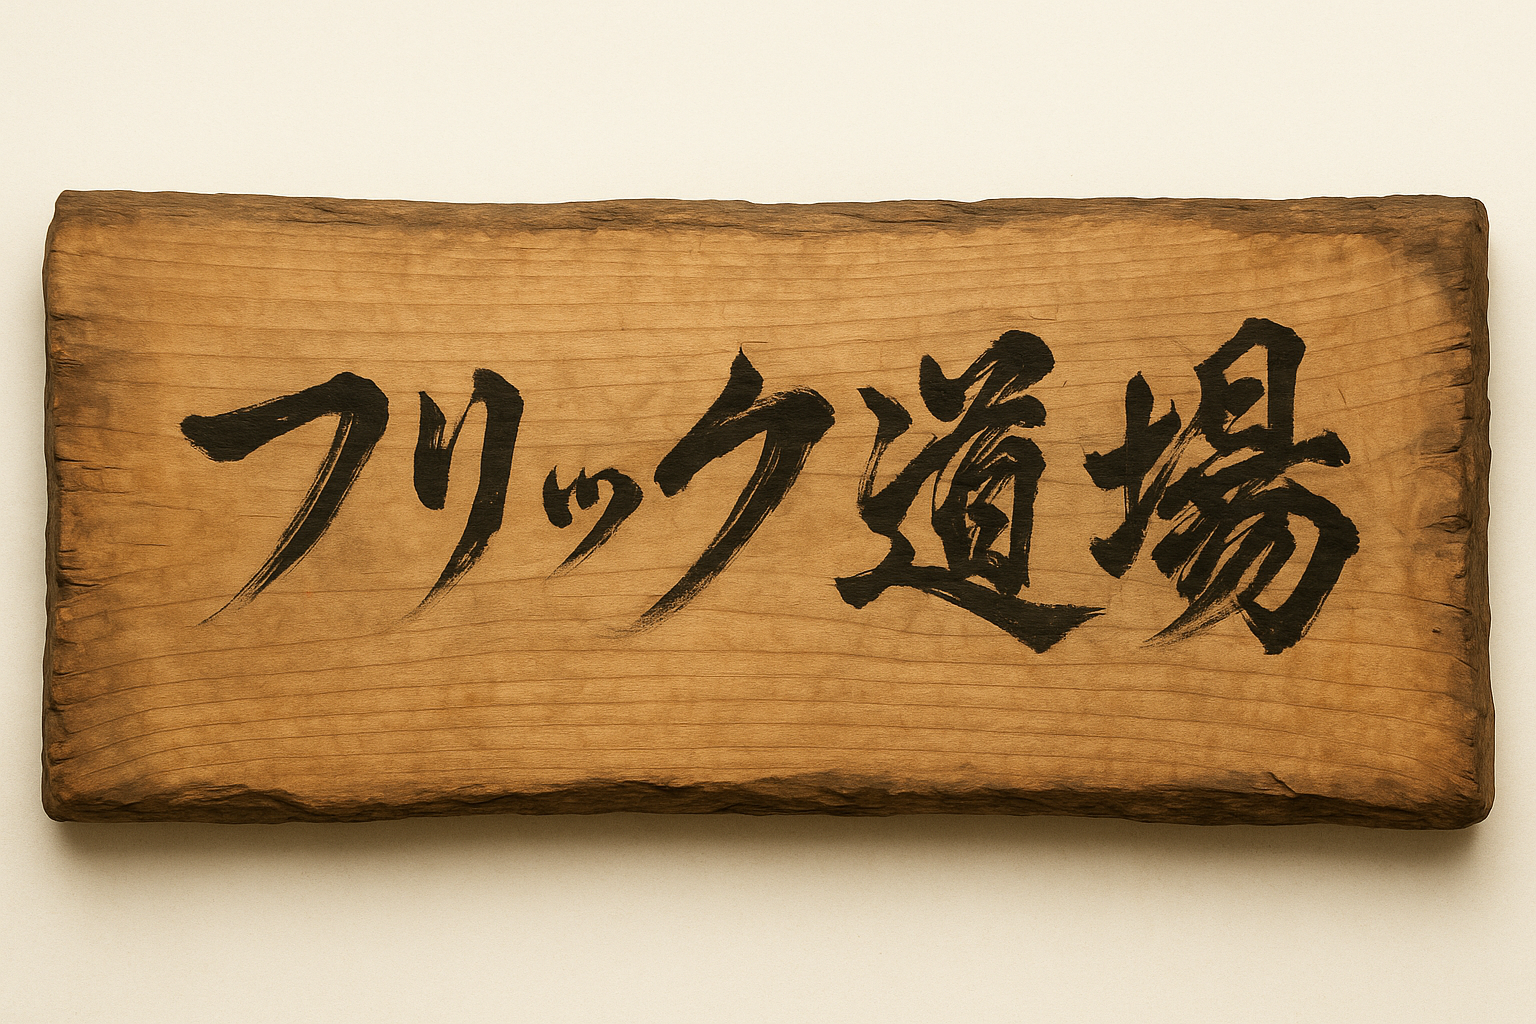 フリック道場